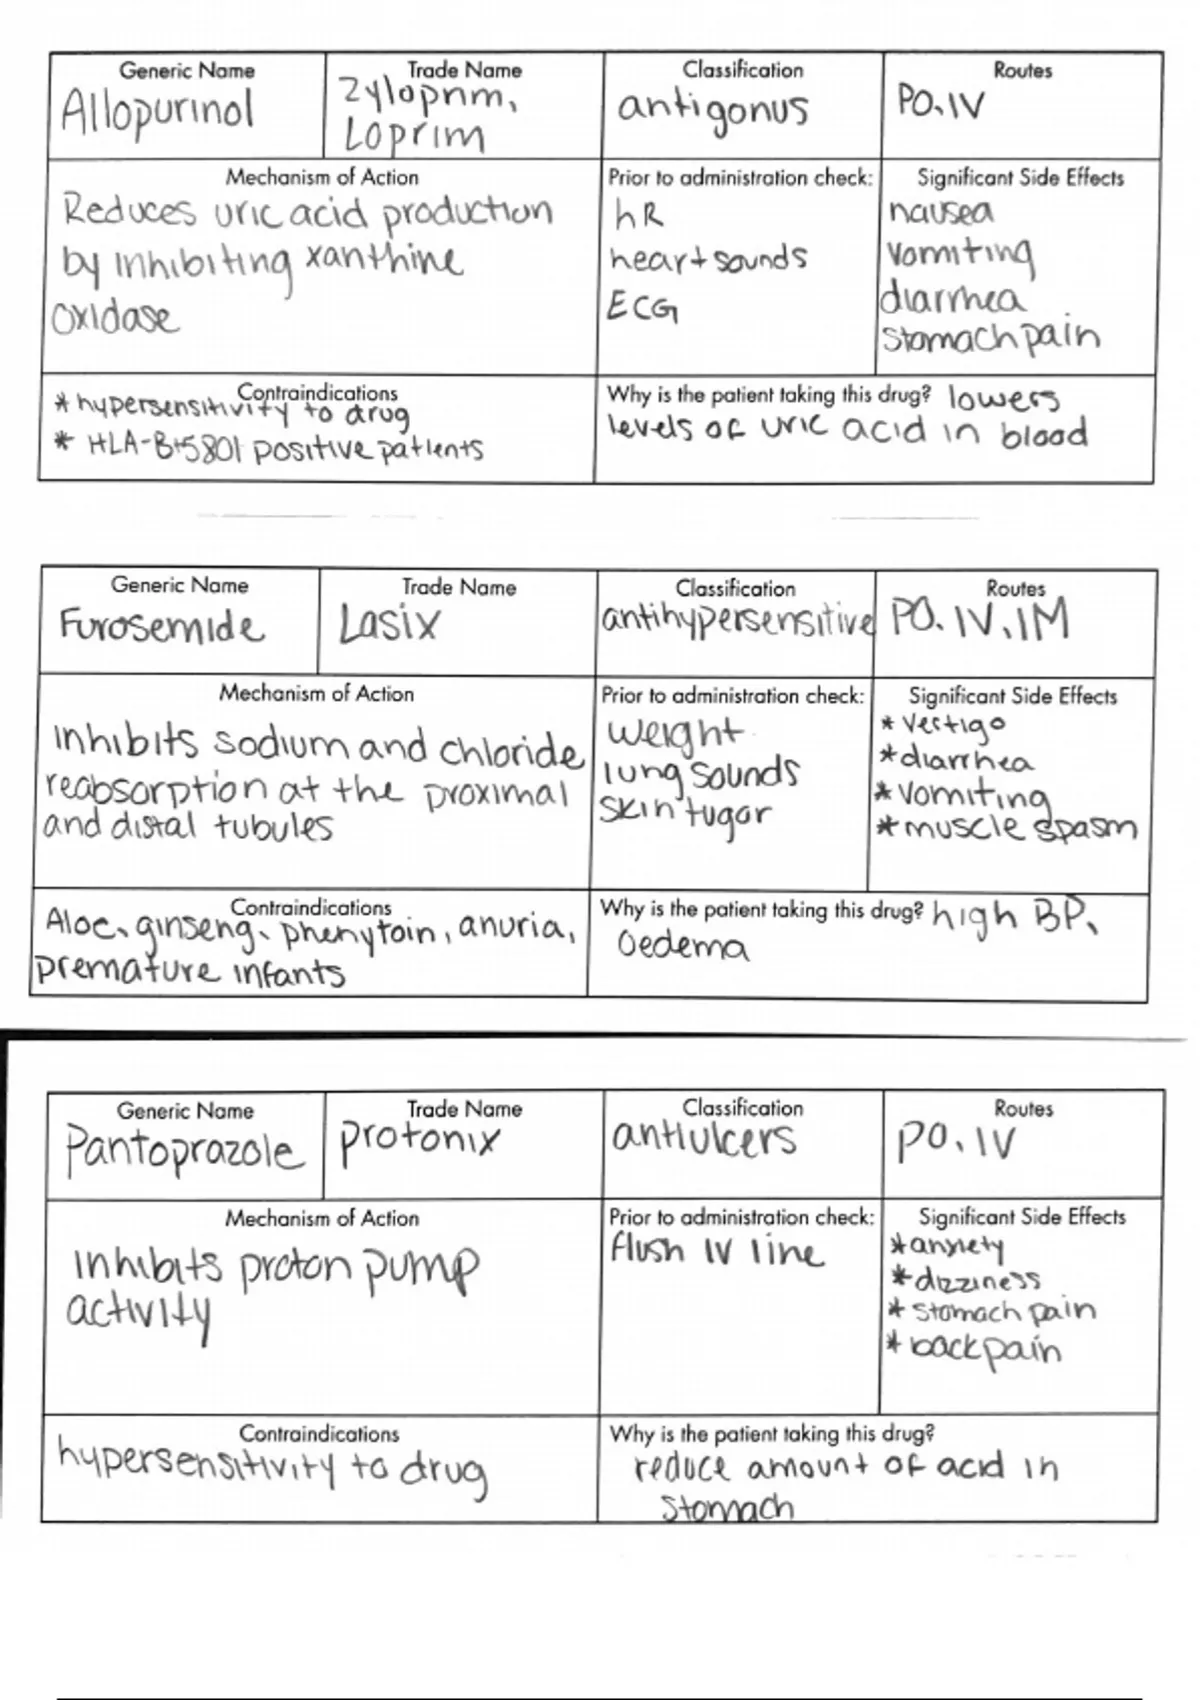 Generic Name Trade Name Classification Routes
Allopurinol Zyloprim, antigonus PO, IV
Loprim
Mechanism of Action Prior to administration check: Significant Side Effects
Reduces uric acid production hR nausea
by inhibiting xanthine heart sounds vomiting
oxidase ECG diarrhea
stomach pain
Contraindications Why is the patient taking this drug? lowers
* hypersensitivity to drug levels of uric acid in blood
* HLA-B*5801 positive patients
Generic Name Trade Name Classification Routes
Furosemide Lasix antihypersensitive PO, IV, IM
Mechanism of Action Prior to administration check: Significant Side Effects
Inhibits sodium and chloride weight * vertigo
reabsorption at the proximal lung sounds * diarrhea
and distal tubules skin tugor * vomiting
* muscle spasm
Contraindications Why is the patient taking this drug? high BP,
Aloe, ginseng, phenytoin, anuria, oedema
premature infants
Generic Name Trade Name Classification Routes
Pantoprazole protonix antiulcers PO, IV
Mechanism of Action Prior to administration check: Significant Side Effects
Inhibits proton pump flush IV line * anxiety
activity * dizziness
* stomach pain
* back pain
Contraindications Why is the patient taking this drug?
hypersensitivity to drug reduce amount of acid in
stomach